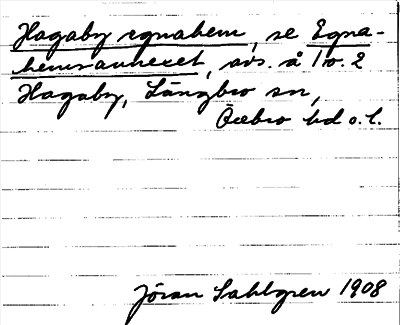 Hagaby egnahem, se Egna-
hemsannexet, avs. å No. 2
Hagaby, Längbro sn,
Örebro hd o. l.
Jöran Sahlgren 1908